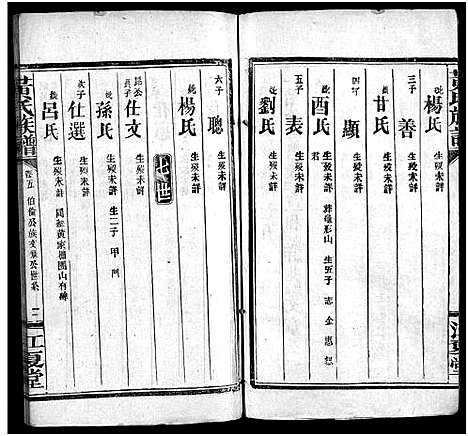 黄氏族譜
江夏堂
配 楊氏 生殁未詳
三子 善 生殁未詳
配 甘氏 生殁未詳
四子 顯 生殁未詳
配 酉氏 生殁未詳 葬雄形山 生五子 志 金 惠 想
五子 表 生殁未詳
配 劉氏 生殁未詳
六子 聰 生殁未詳
配 楊氏 生殁未詳
昆公次子 仕文 生殁未詳 生二子 甲 門
配 孫氏 生殁未詳
仕選 生殁未詳
配 呂氏 生殁未詳 黄家棚團山有碑
黄氏族譜
卷五 伯倫公族文景公世系
江夏堂